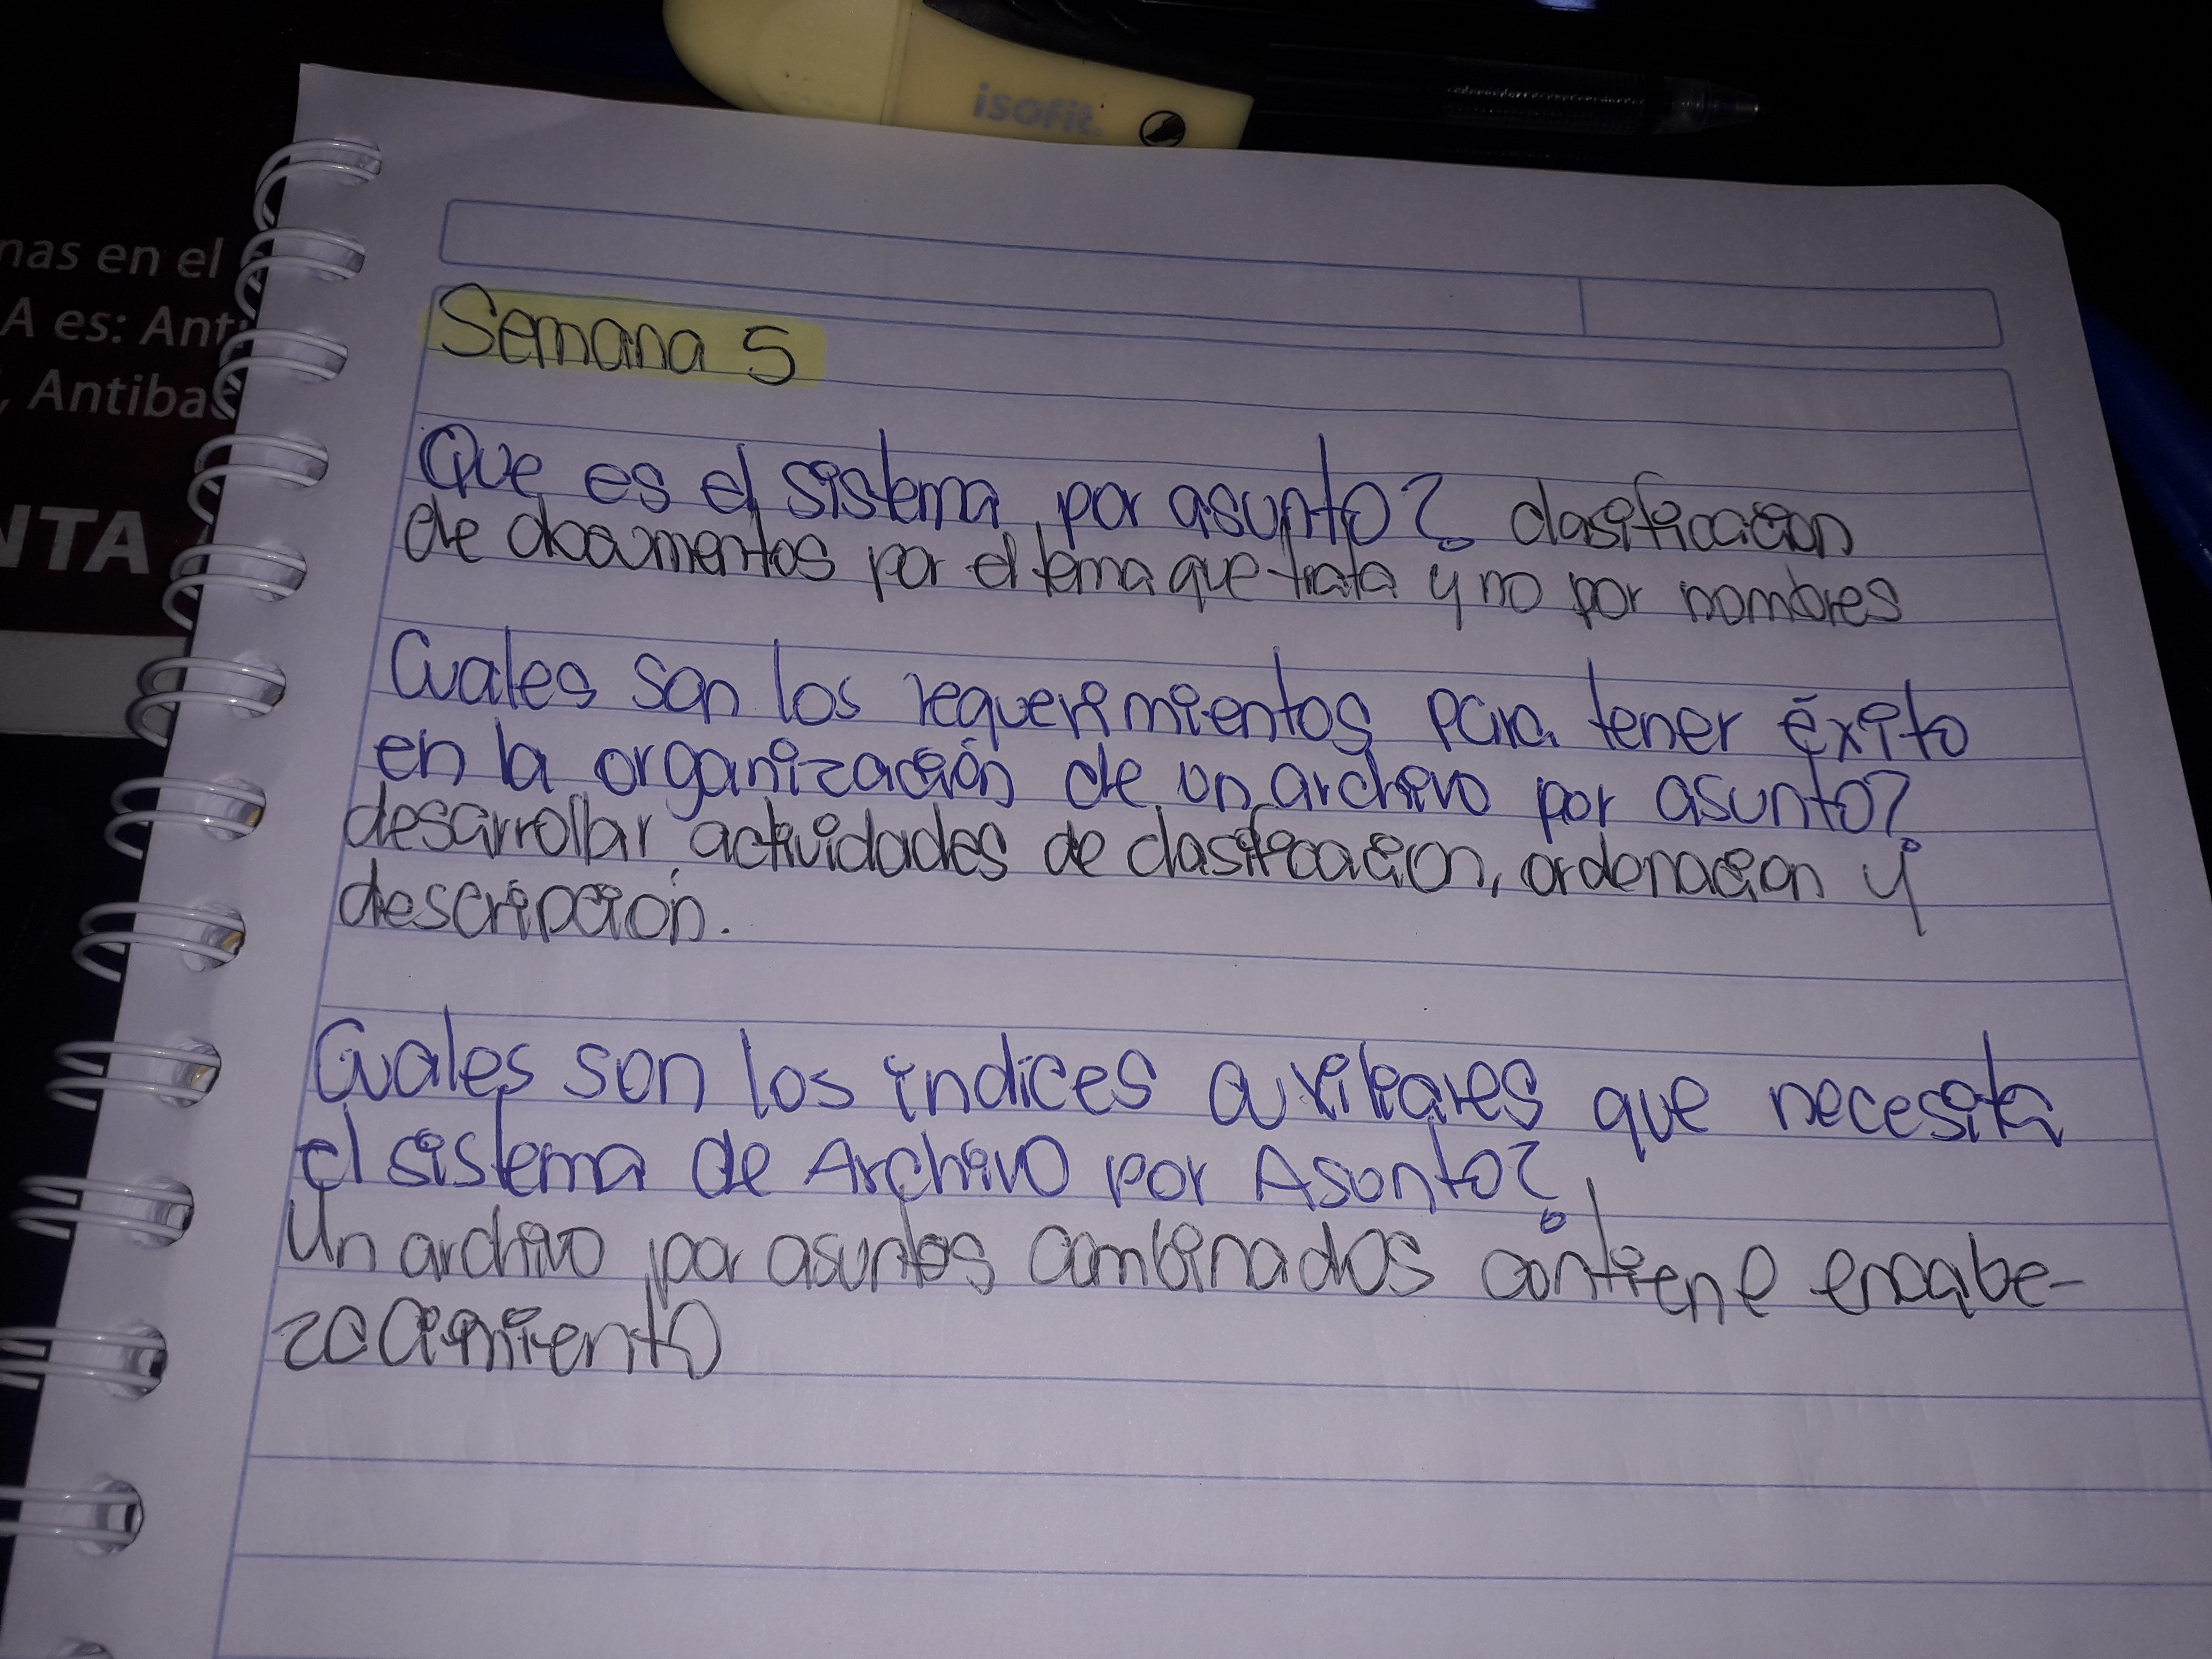 isofit.
nas en el
A es: Anti
, Antibac
NTA
Semana 5
Que es el sistema por asunto? clasificacion
de documentos por el tema que trata y no por nombres
Cuales son los requerimientos para tener éxito
en la organización de un archivo por asunto?
desarrollar actividades de clasificacion, ordenacion y
descripción.
Cuales son los indices auxiliares que necesita
el sistema de Archivo por Asunto?
Un archivo por asuntos combinados contiene encabe-